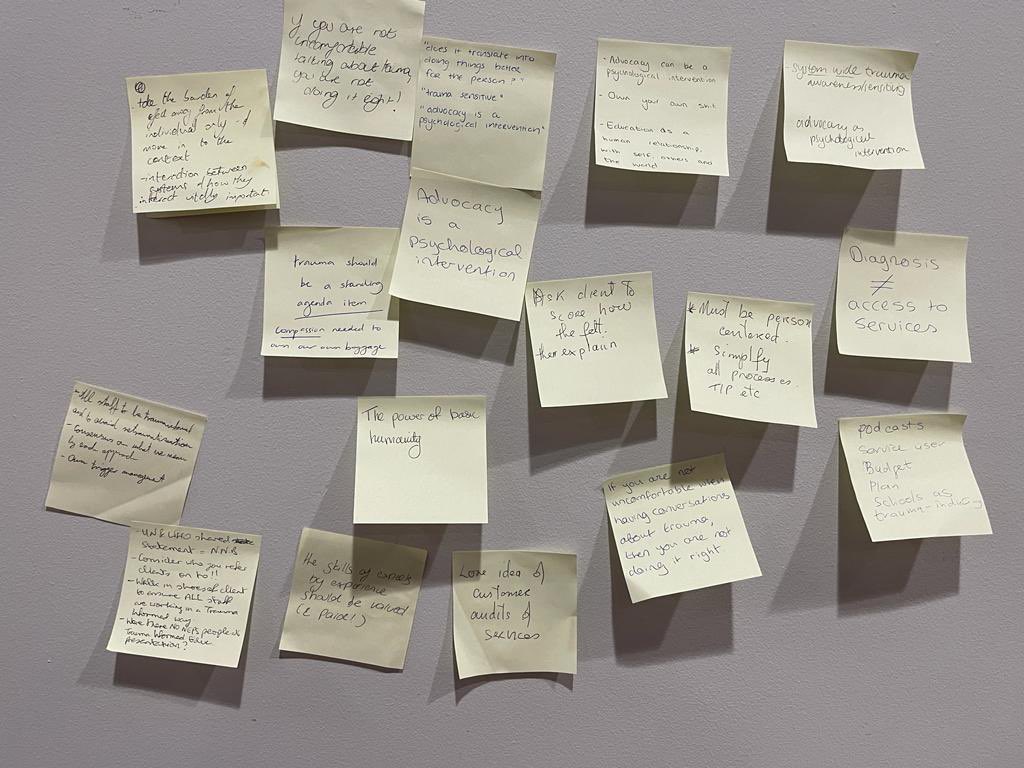 If you are not
uncomfortable
talking about trauma,
you are not
doing it right!
"does it translate into
doing things better
for the person?"
"trauma sensitive"
"advocacy is a
psychological intervention"
- Advocacy can be a
psychological intervention
- Own your own shit
- Education as a
human relationship,
with self, others and
the world
- system wide trauma
awareness/
advocacy as
psychological
intervention
take the burden of
away from the
individual only &
move in to the
context
- interaction between
systems & how they
interact vitally important
Advocacy
is a
psychological
intervention
trauma should
be a standing
agenda item
Compassion needed to
own our own baggage
Ask client to
score how
the felt.
then explain
* Must be person
centered.
* Simplify
all processes.
TIP etc
Diagnosis
≠
access to
services
- All staff to be trauma informed
and to avoid retraumatisation
- Consensus on what we mean
by each approach
- Own trigger management
The power of basic
humanity
If you are not
uncomfortable when
having conversations
about trauma,
then you are not
doing it right.
podcasts
service user
Budget
Plan
Schools as
trauma-inducing
- UN & WHO shared
Statement = N.N.B
- Consider who you refer
clients on to!!
- Walk in shoes of client
to ensure ALL staff
are working in a Trauma
Informed way
- Were there NO NEPS people @
Trauma Informed Educ.
presentation?
the skills of experts
by experience
should be valued
(& paid!)
Love idea of
customer
audits of
services